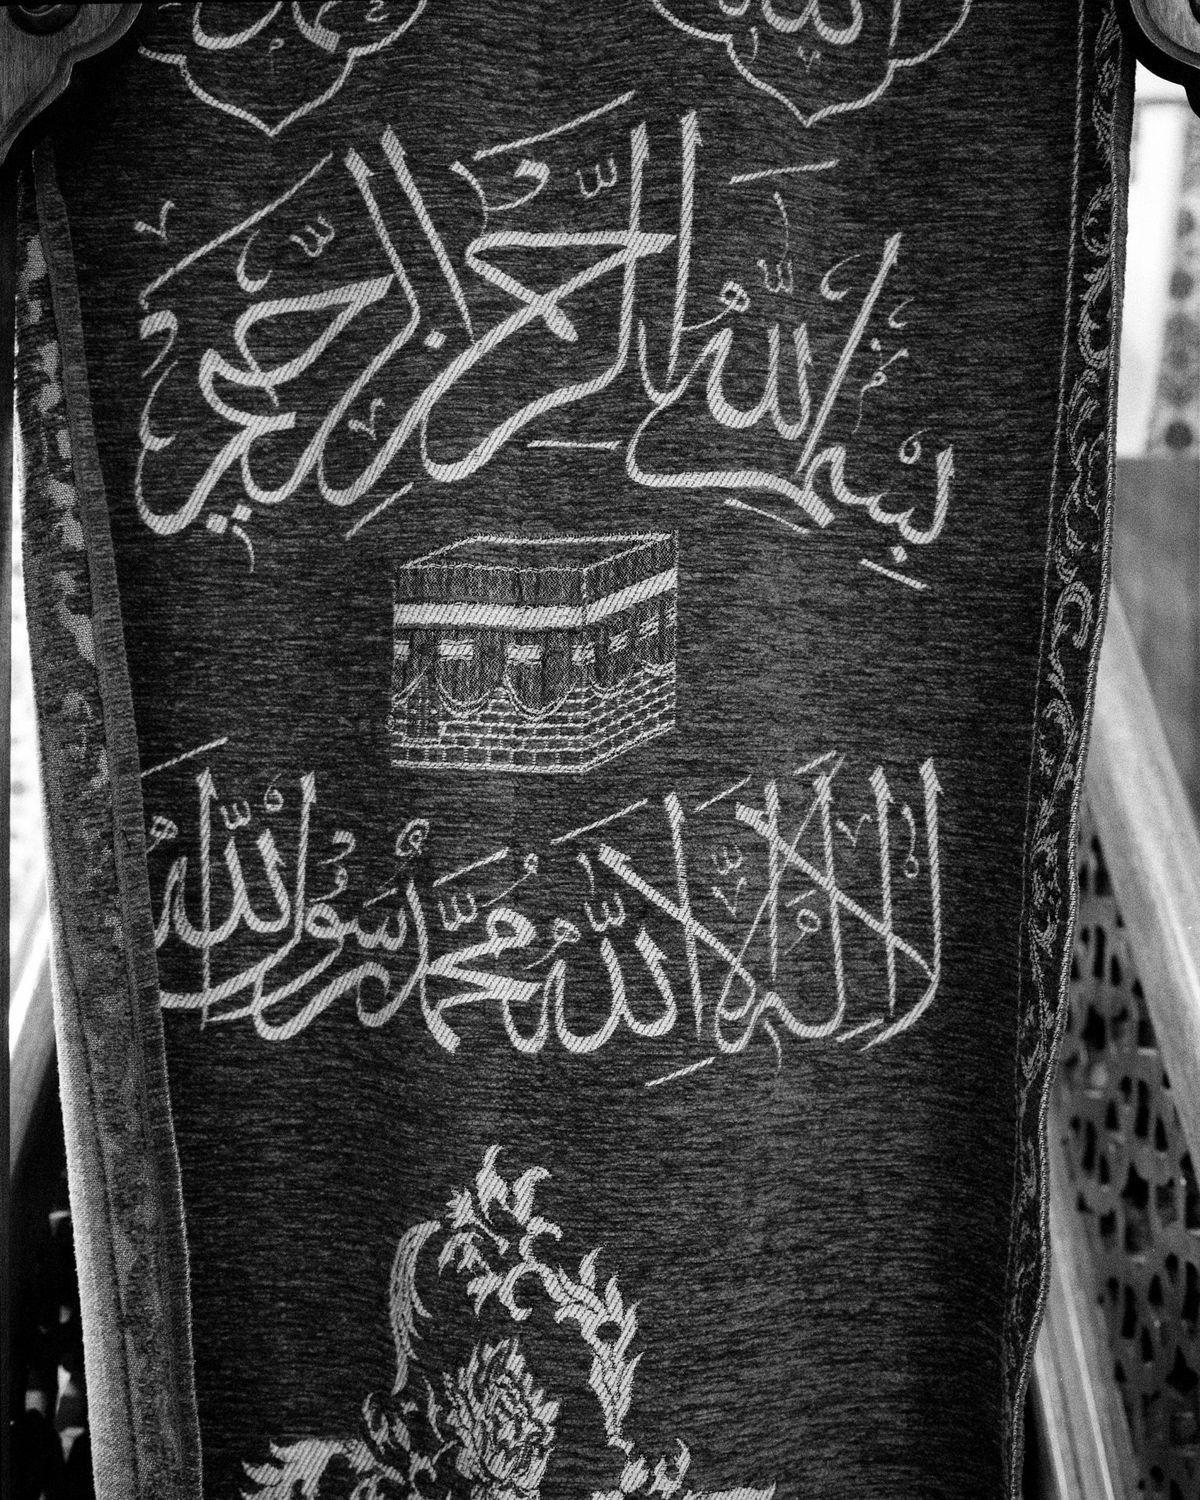 الله
بسم الله الرحمن الرحيم
لا إله إلا الله محمد رسول الله